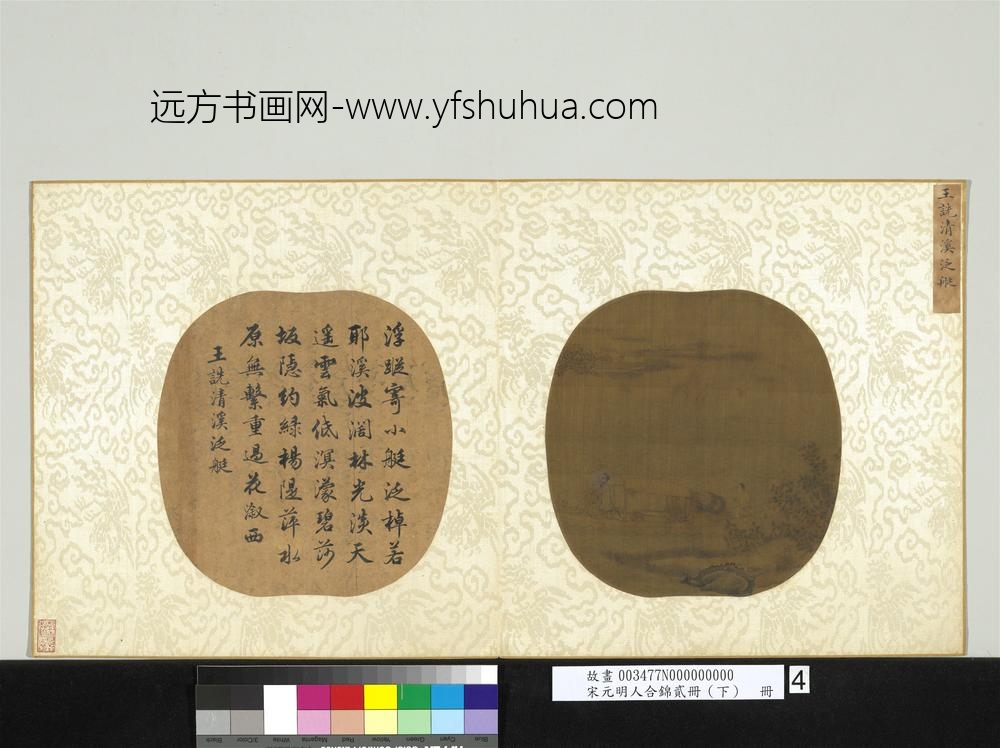 远方书画网-www.yfshuhua.com
王詵清溪泛艇
浮蹤寄小艇泛棹若
耶溪波濶林光淡天
遥雲氣低溟濛碧莎
坂隱約綠楊隄萍水
原無繫重過花溆西
王詵清溪泛艇
故畫 003477N000000000
宋元明人合錦貳冊（下） 冊
4
Black
3/Color
White
Magenta
Red
Yellow
Green
Cyan
Blue